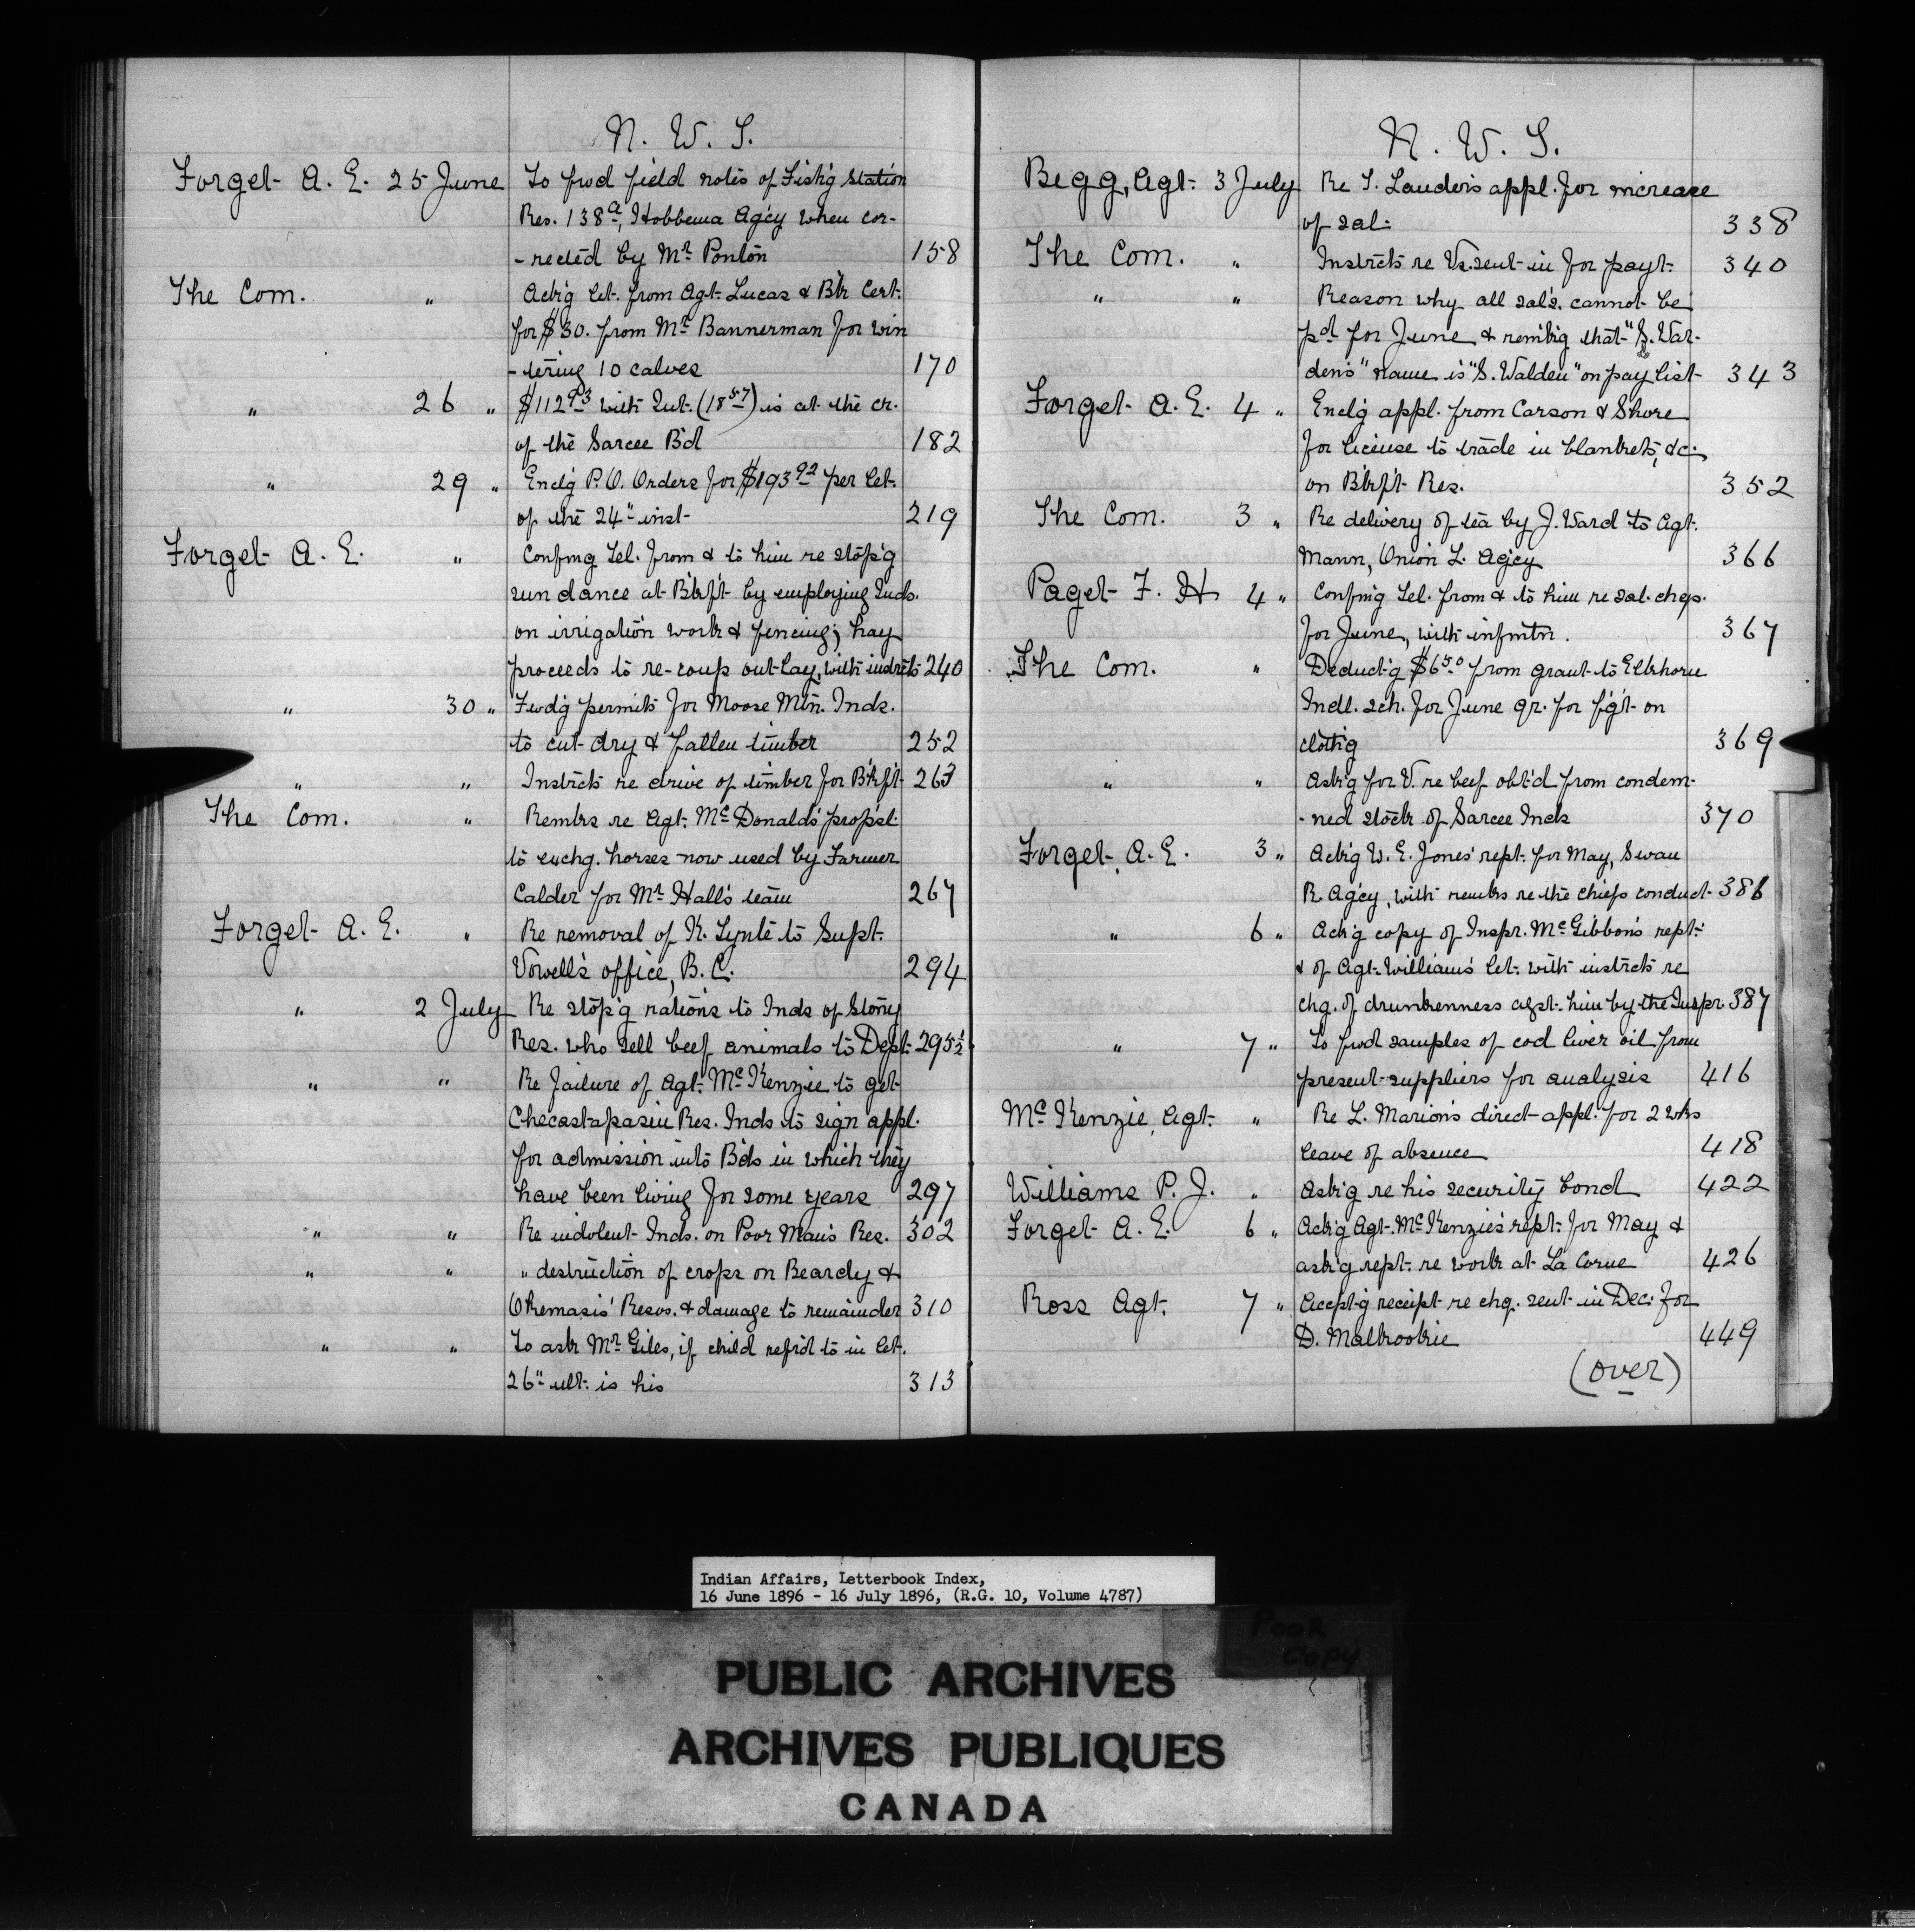 N. W. T.
Forget A. E. 25 June To fwd field notes of Fish'g Station
Res. 138a, Hobbema Ag'cy when cor-
-rected by Mr Ponton 158
The Com. " Ack'g let. from Agt. Lucas & Bk Cert.
for $30. from Mr Bannerman for win
-tering 10 calves 170
" 26 " $112 93 with Int. (18 57) is at the cr.
of the Sarcee B'd 182
" 29 " Encl'g P.O. Orders for $193 92 per let.
of the 24" inst 219
Forget A. E. " Confmg Tel. from & to him re stop'g
sun dance at B'kf't by employing Inds.
on irrigation work & fencing; hay
proceeds to re-coup out-lay, with instrcts 240
" 30 " Fwd'g permits for Moose Mtn. Inds.
to cut dry & fallen timber 252
" " Instrcts re drive of timber for B'kf't 263
The Com. " Remks re Agt. McDonald's prop'sl
to exchg. horses now used by Farmer
Calder for Mr Hall's team 267
Forget A. E. " Re removal of K. Lynte to Supt.
Vowell's office, B.C. 294
" 2 July Re stop'g rations to Inds of Stony
Res. who sell beef animals to Dept. 295½
" " Re failure of Agt. McKenzie to get
Checastapasin Res. Inds to sign appl.
for admission into B'ds in which they
have been living for some years 297
" " Re indolent Inds. on Poor Man's Res. 302
" " " destruction of crops on Beardy &
Okemasis' Resvs. & damage to remainder 310
" " To ask Mr Giles, if child ref'd to in let.
26" ult. is his 313
N. W. T.
Begg, Agt. 3 July Re T. Lauder's appl. for increase
of sal. 338
The Com. " Instrcts re Vs. sent in for payt. 340
" " Reason why all sal's. cannot be
pd for June & remk'g that "S. War-
den's" name is "S. Walden" on pay list 343
Forget A. E. 4 " Encl'g appl. from Carson & Shore
for license to trade in blankets, &c.
on B'kf't Res. 352
The Com. 3 " Re delivery of tea by J. Ward to Agt.
Mann, Onion L. Agcy 366
Paget F. H 4 " Confmg Tel. from & to him re sal. chqs.
for June, with infmtn. 367
The Com. " Deduct'g $6 50 from grant to Elkhorn
Indl. sch. for June qr. for f'g't on
cloth'g 369
" " Ask'g for V. re beef obt'd from condem-
-ned stock of Sarcee Inds 370
Forget A. E. 3 " Ack'g W. E. Jones' rept. for May, Swan
R. Ag'cy, with remks re the chief's conduct 386
" 6 " Ack'g copy of Inspr. McGibbon's rept.
& of Agt. Williams' let. with instrcts re
chg. of drunkenness agst. him by the Inspr 387
" 7 " To fwd samples of cod liver oil from
present suppliers for analysis 416
McKenzie, Agt. " Re L. Marion's direct appl. for 2 wks
leave of absence 418
Williams P. J. " Ask'g re his security bond 422
Forget A. E. 6 " Ack'g Agt. McKenzie's rept. for May &
ask'g rept. re work at La Corne 426
Ross Agt. 7 " Accept'g receipt re chq. sent in Dec. for
D. Malkookie 449
(over)
Indian Affairs, Letterbook Index,
16 June 1896 - 16 July 1896, (R.G. 10, Volume 4787)
Poor
Copy
PUBLIC ARCHIVES
ARCHIVES PUBLIQUES
CANADA